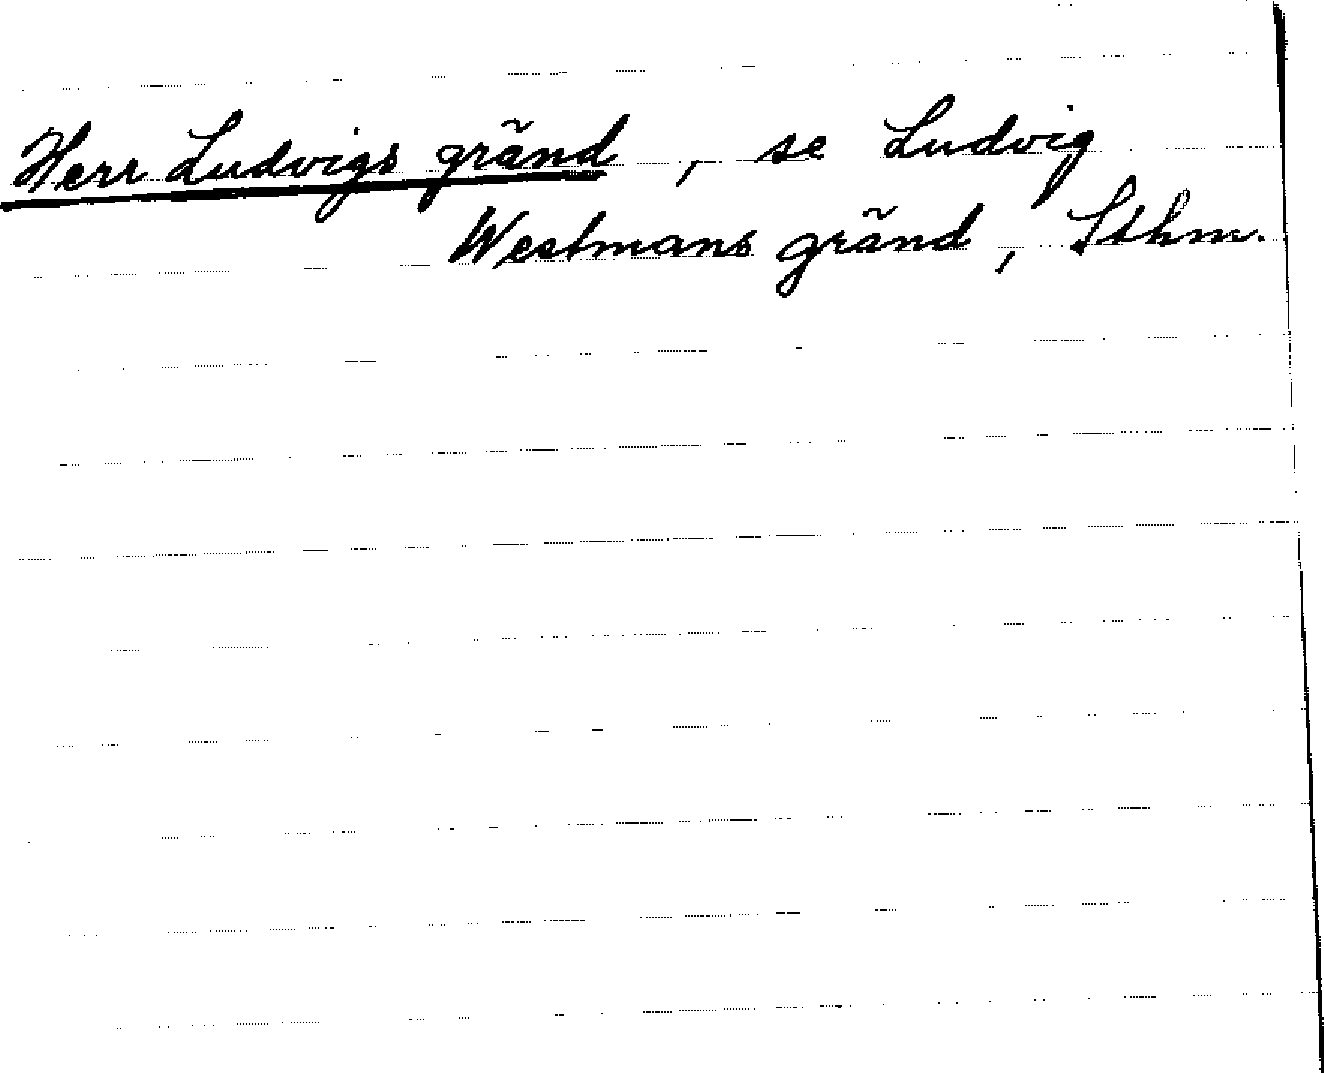 Herr Ludvigs gränd, se Ludvig
Westmans gränd, Sthm.